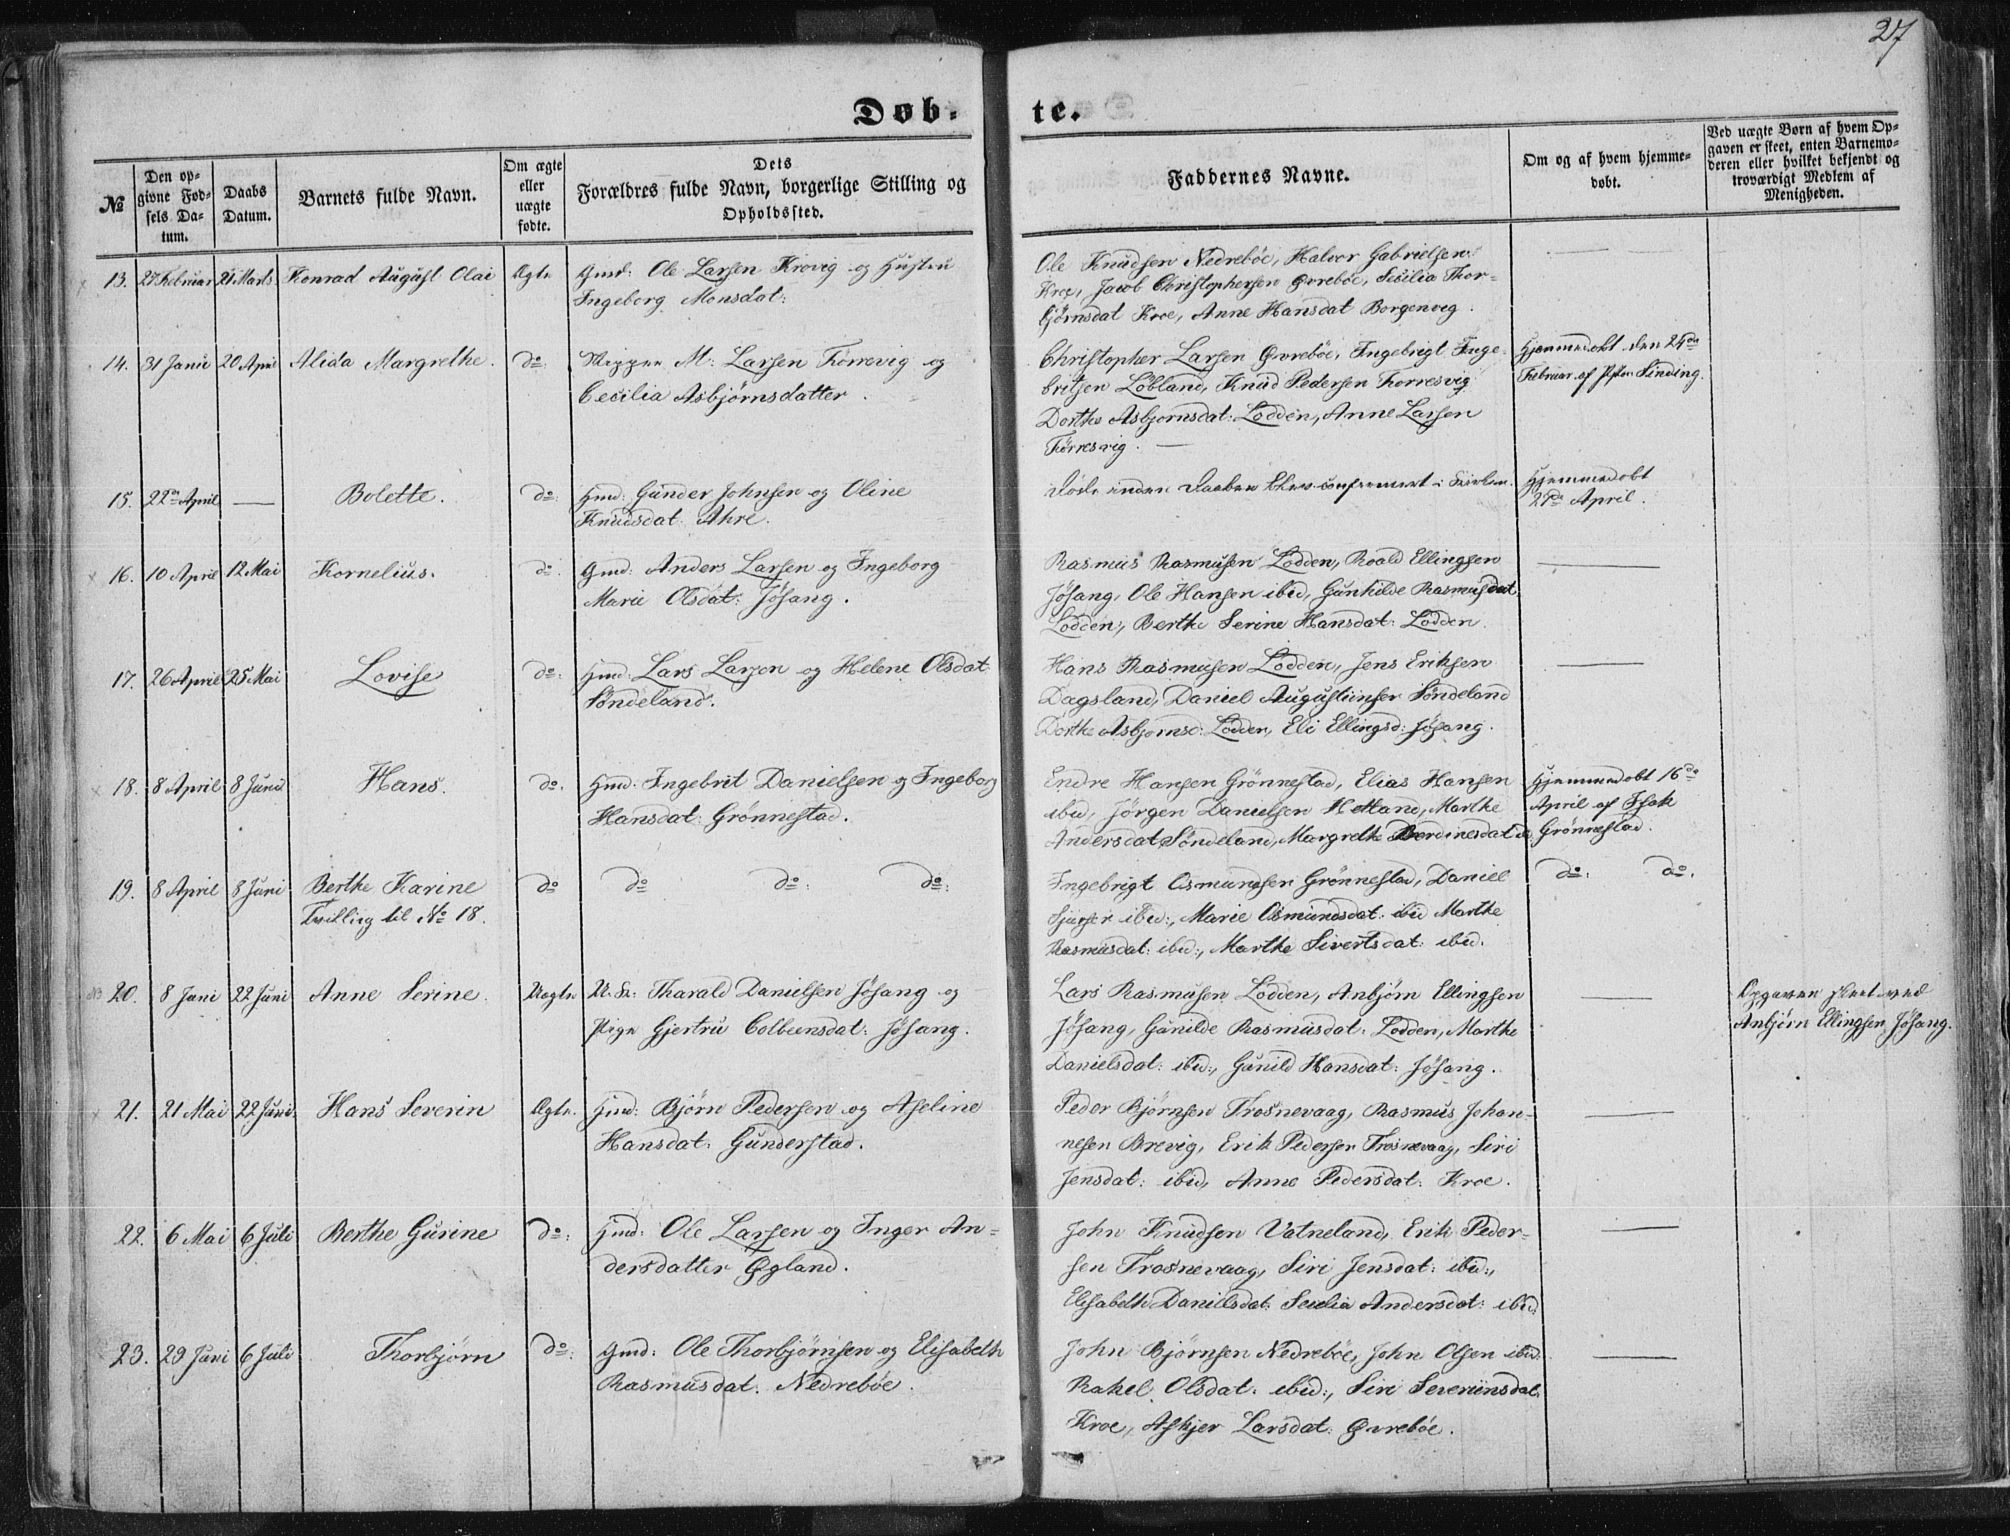 27
Døb-
te.
№
Den op-
givne Fød-
sels Da-
tum.
Daabs
Datum.
Barnets fulde Navn.
Om ægte
eller
uægte
fødte.
Dets
Forældres fulde Navn, borgerlige Stilling og
Opholdssted.
Faddernes Navne.
Om og af hvem hjemme-
døbt.
Ved uægte Børn af hvem Op-
gaven er skeet, enten Barnemo-
deren eller hvilket bekjendt og
troværdigt Medlem af
Menigheden.
13. 27 Februar 21 Marts Konrad August Olai Ægte Gmd: Ole Larsen Krovig og Hustru
Ingeborg Monsdat:
Ole Knudsen Nedrebøe, Halvor Gabrielsen
Kroe, Jacob Christophersen Øvrebøe, Sesilia Thor-
bjørnsdat Kroe, Anne Hansdat Borgenvig.
14. 31 Janu 20 April Alida Margrethe. do: Skipper M: Larsen Førrevig og
Cecilia Asbjørnsdatter.
Christopher Larsen Øvrebøe, Ingebrigt Inge-
britsen Løbland, Knud Pedersen Førresvig
Dorthe Asbjørnsdat: Lodden, Anne Larsen
Førresvig. —
Hjemmedøbt den 24de
Februar af Sinding.
15. 22de April — Bolette. do: Hmd: Gunder Johnsen og Oline
Knudsdat: Ahre.
Døde inden Daaben blev confirmeret i Kirken.
Hjemmedøbt
27de April.
16. 10 April 12 Mai Kornelius. do: Gmd: Anders Larsen og Ingeborg
Marie Olsdat: Jøsang.
Rasmus Rasmusen Lodden, Roald Ellingsen
Jøsang, Ole Hansen ibid, Gunhilde Rasmusdat
Lodden, Berthe Serine Hansdat: Lodden.
17. 26 April 25 Mai Lovise do: Hmd: Lars Larson og Helene Olsdat
Søndeland.
Hans Rasmusen Lodden, Jens Eriksen
Dagsland, Daniel Augustinsen Søndeland
Dorthe Asbjørnsd: Lodden, Eli Ellingsd: Jøsang.
18. 8 April 8 Juni Hans. do. Hmd: Ingebrit Danielsen og Ingeborg
Hansdat: Grønnestad.
Endre Hansen Grønnestad, Elias Hansen
ibid, Jørgen Danielsen Hetland, Marthe
Andersdat Søndeland, Margrethe Berdinesdat
Hjemmedøbt 16de
April af Isak
Grønnestad.
19. 8 April 8 Juni Berthe Karine do do do: do:
Tvilling til No 18.
Ingebrigt Osmundsen Grønnestad, Daniel
ibid:, Marie Osmundsdat: ibid Marthe
Rasmusdat: ibid:, Marthe Sivertsdat: ibid.
do: do.
20. 8 Juni 22 Juni Anne Serine. Uægte U. K. Tharald Danielsen Jøsang og
Pige Gjertru Colbensdat: Jøsang.
Lars Rasmusen Lodden, Anbjørn Ellingsen
Jøsang, Gunilde Rasmusdat: Lodden, Marthe
Danielsdat: ibid:, Gunild Hansdat: Jøsang.
Opgaven skeet ved
Anbjørn Ellingsen Jøsang.
21. 21 Mai 22 Juni Hans Severin Ægte. Hmd: Bjørn Pedersen og Aseline
Hansdat: Gunderstad.
Peder Bjørnsen Trosnevaag, Rasmus Johan-
nesen Brevig, Erik Pedersen Trosnevaag, Siri
Jensdat: ibid, Anne Pedersdat: Kroe.
22. 6 Mai 6 Juli Berthe Gurine do: Hmd: Ole Larsen og Inger An-
dersdatter Øgland.
John Knudsen Vatneland, Erik Peder-
sen Trosnevaag, Siri Jensdat: ibid:,
Elisabeth Danielsdat: Secelia Andersdat: ibid:
23. 29 Juni 6 Juli Thorbjørn do: Gmd: Ole Thorbjørnsen og Elisabeth
Rasmusdat: Nedrebøe.
John Bjørnsen Nedrebøe, John Olsen ibid:
Rakel Olsdat: ibid:, Siri Severinsdat
Kroe, Askjer Larsdat: Øvrebøe.